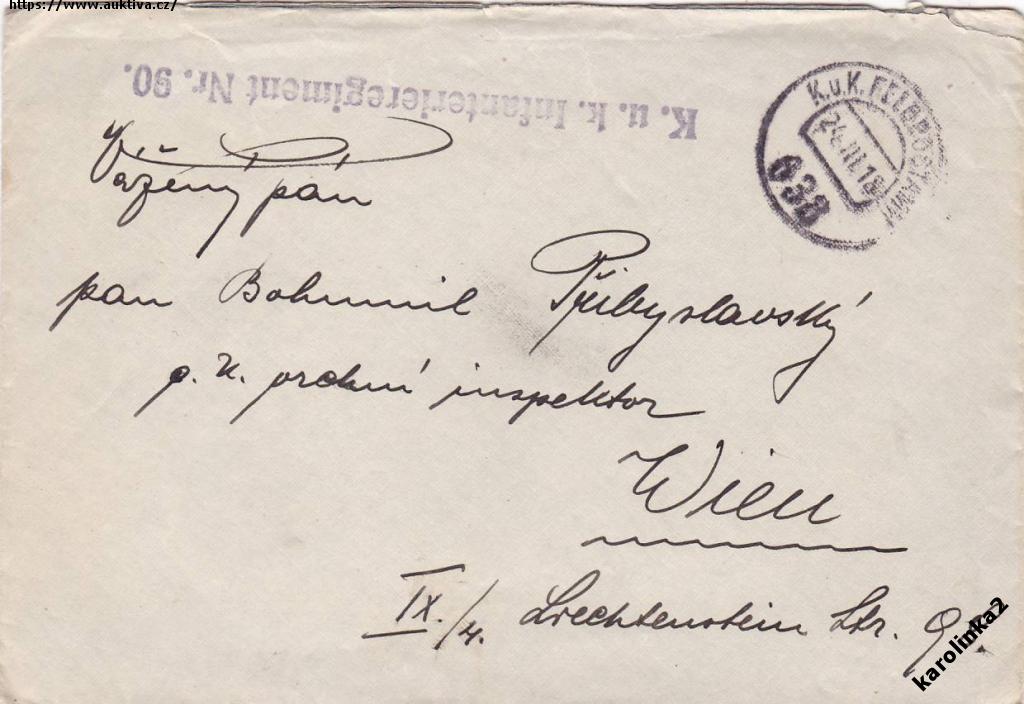 https://www.auktiva.cz/
K. u. k. Infanterieregiment Nr. 90.
K.u.K. FELDPOSTAMT
24.III.18
638
Vážený pán
pan Bohumil Přibyslavský
c. k. vrchní inspektor
Wien
IX./4. Liechtenstein Str.
karolinka2